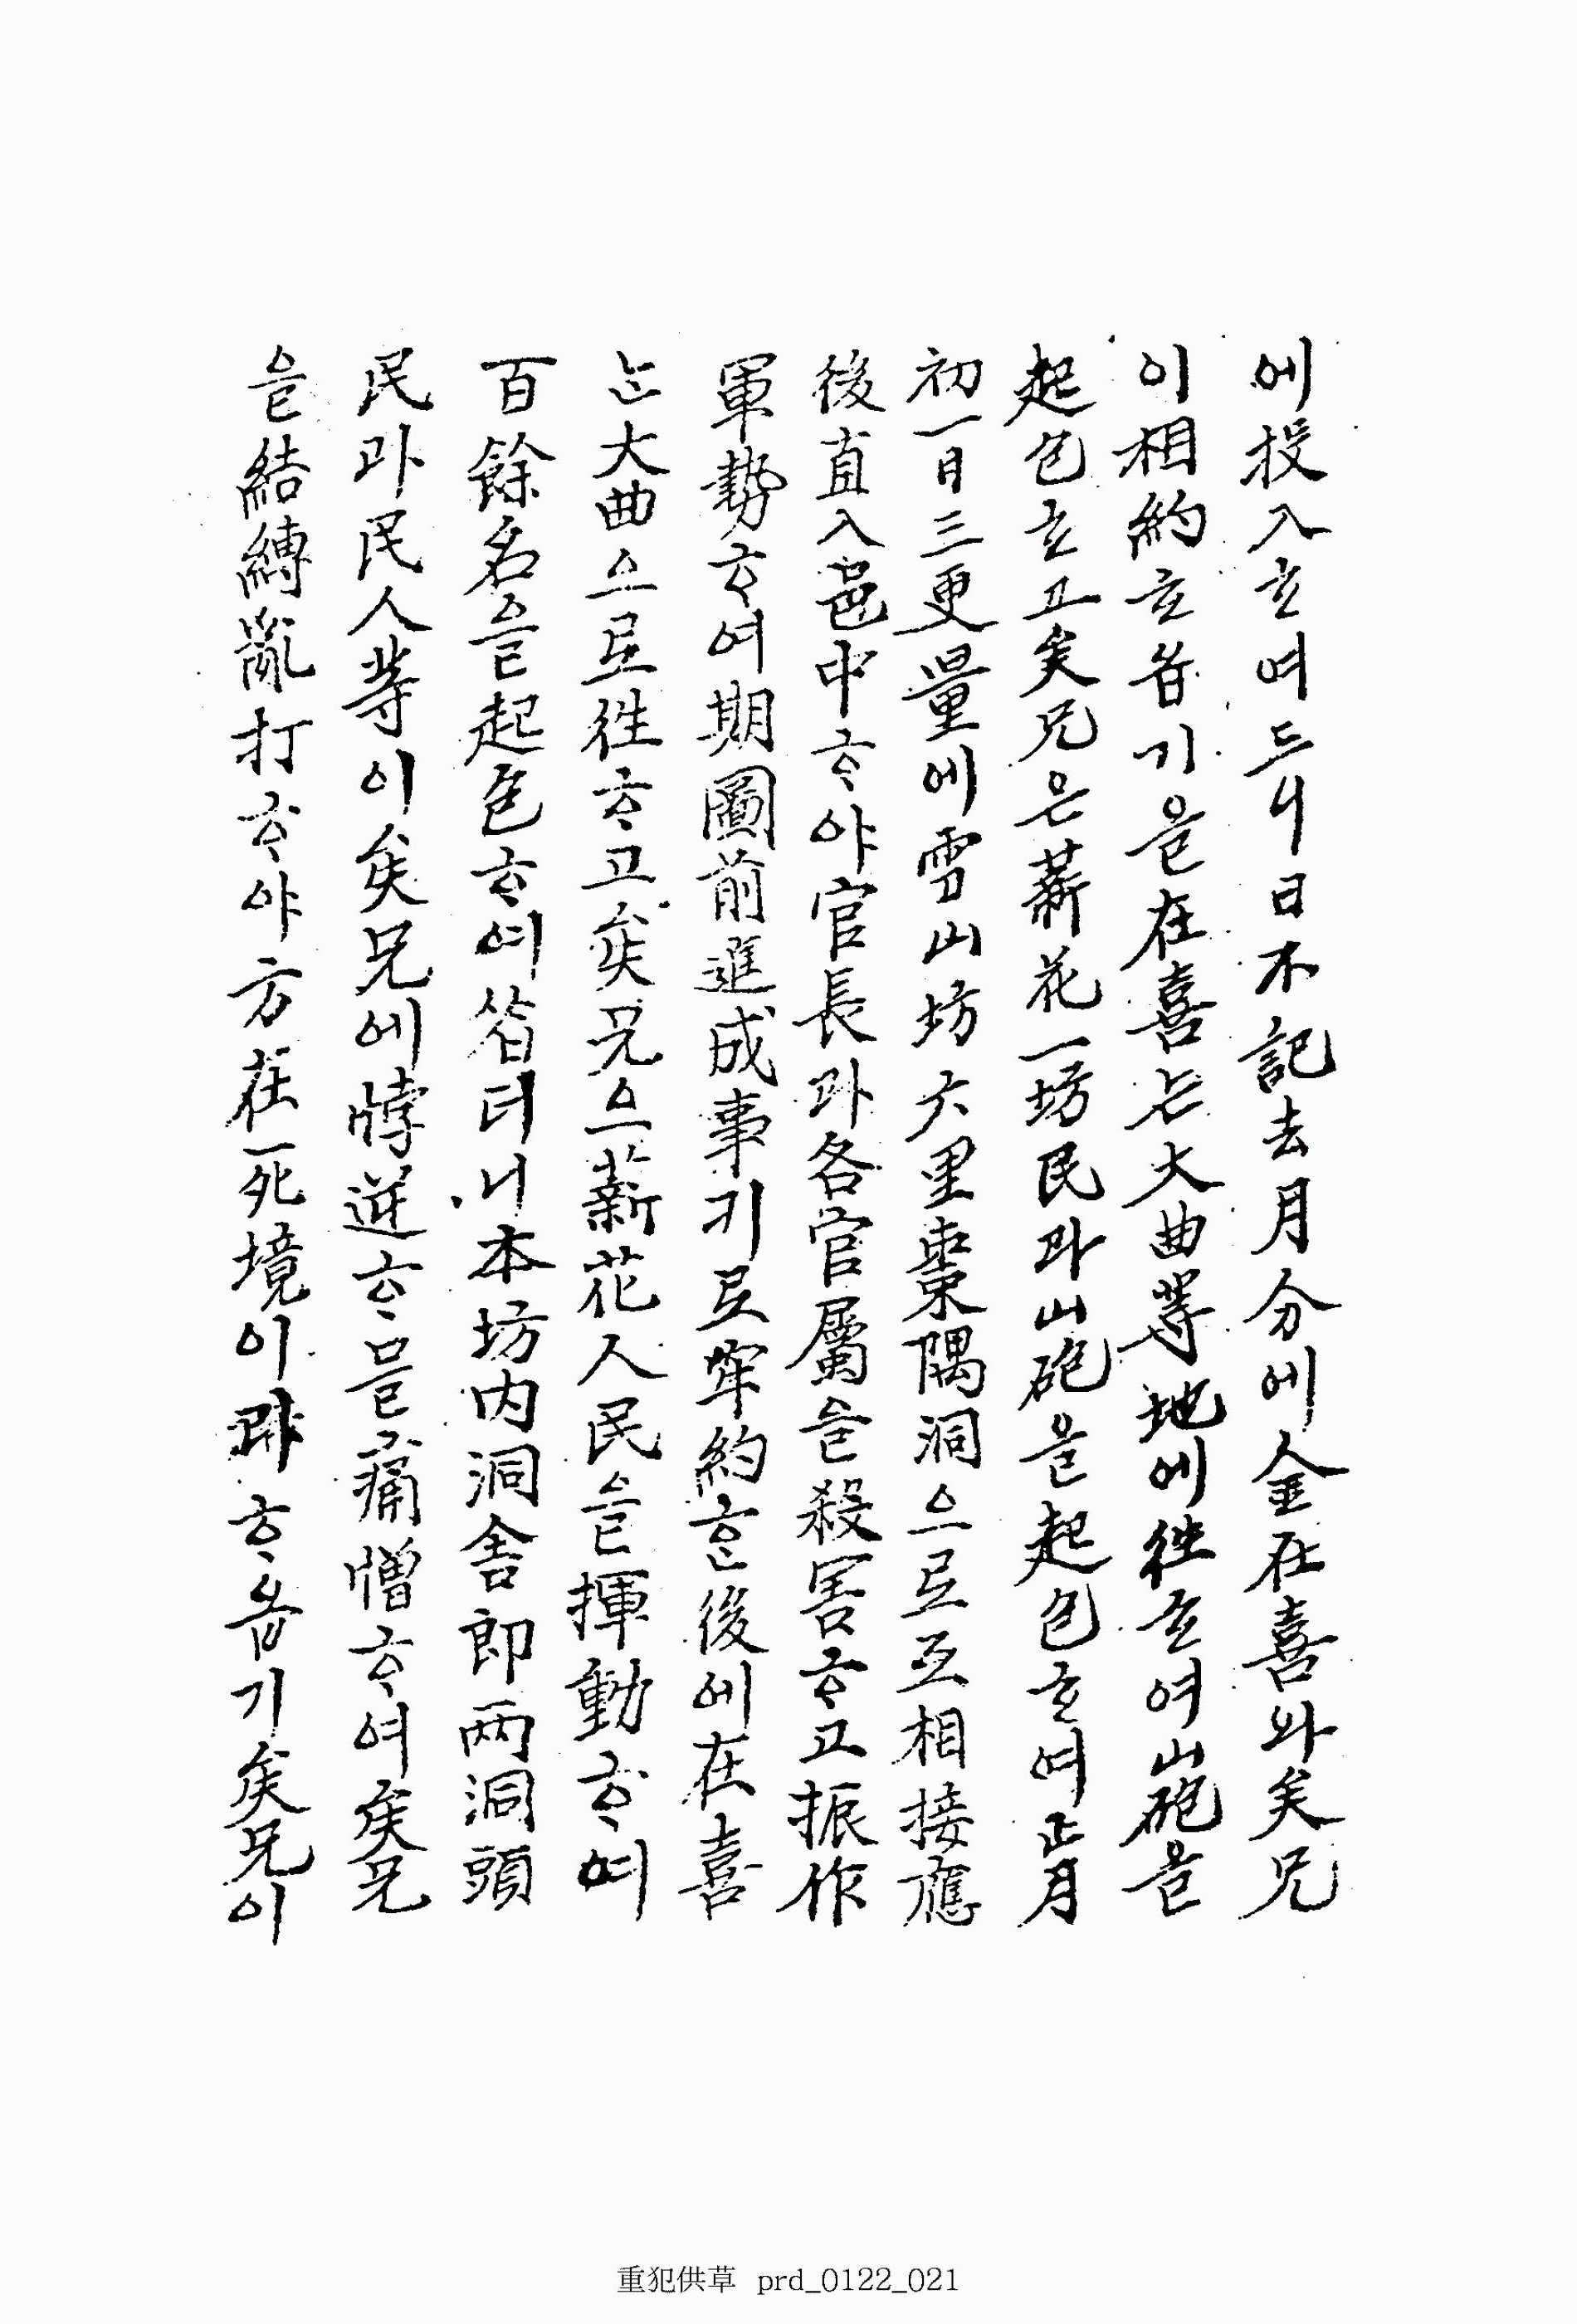 에投入ᄒᆞ여드니日不記去月分에金在喜와矣兄
이相約ᄒᆞ옵기을在喜ᄂᆞᆫ大曲等地에往ᄒᆞ여山砲을
起包ᄒᆞ고矣兄은薪花一坊民과山砲을起包ᄒᆞ여正月
初一日三更量에雪山坊六里棗隅洞으로互相接應
後直入邑中ᄒᆞ야官長과各官屬을殺害ᄒᆞ고振作
軍勢ᄒᆞ여期圖前進成事기로牢約ᄒᆞᆫ後에在喜
ᄂᆞᆫ大曲으로往ᄒᆞ고矣兄으薪花人民을揮動ᄒᆞ여
百餘名을起包ᄒᆞ여ᄉᆞᆸ더니本坊内洞舍即両洞頭
民과民人等이矣兄에悖逆ᄒᆞ믈痛憎ᄒᆞ여矣兄
을結縛亂打ᄒᆞ야方在死境이라ᄒᆞ옵기矣兄이
重犯供草 prd_0122_021